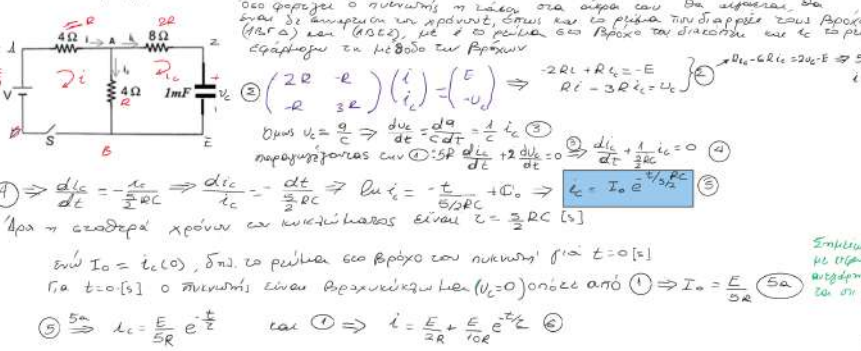 4Ω =R i A i_c 8Ω 2R
1 2
i i_c
V 4Ω R 1mF + u_c
S B E
Όσο φορτίζει ο πυκνωτής η τάση στα άκρα του θα αυξάνεται, θα
είναι δε συνάρτηση του χρόνου t, όπως και το ρεύμα που διαρρέει τους βρόχους
με i το ρεύμα στο βρόχο του διακόπτη και i_c το
εφαρμόγω τη μέθοδο των βρόχων
② (2R -R / -R 3R) (i / i_c) = (E / -u_c) ⇒ -2Ri + Ri_c = -E / Ri - 3Ri_c = u_c } ② Ri_c - 6Ri_c = 2u_c - E ⇒
Όμως u_c = q/c ⇒ du_c/dt = dq/cdt = 1/c i_c ③
παραγωγίζοντας την ①: 5R di_c/dt + 2 du_c/dt = 0 ③⇒ di_c/dt + 1/(5/2 RC) i_c = 0 ④
④ ⇒ di_c/dt = - i_c/(5/2 RC) ⇒ di_c/i_c = - dt/(5/2 RC) ⇒ ln i_c = - t/(5/2RC) + C_0 ⇒ i_c = I_0 e^{-t/(5/2 RC)} ⑤
Άρα η σταθερά χρόνου του κυκλώματος είναι τ = 5/2 RC [s]
ενώ I_0 = i_c(0), δηλ. το ρεύμα στο βρόχο του πυκνωτή για t=0[s]
Για t=0[s] ο πυκνωτής είναι βραχυκύκλωμα (u_c=0) οπότε από ① ⇒ I_0 = E/5R ⑤a
⑤ 5a⇒ i_c = E/5R e^{-t/τ} και ① ⇒ i = E/2R + E/10R e^{-t/τ} ⑥